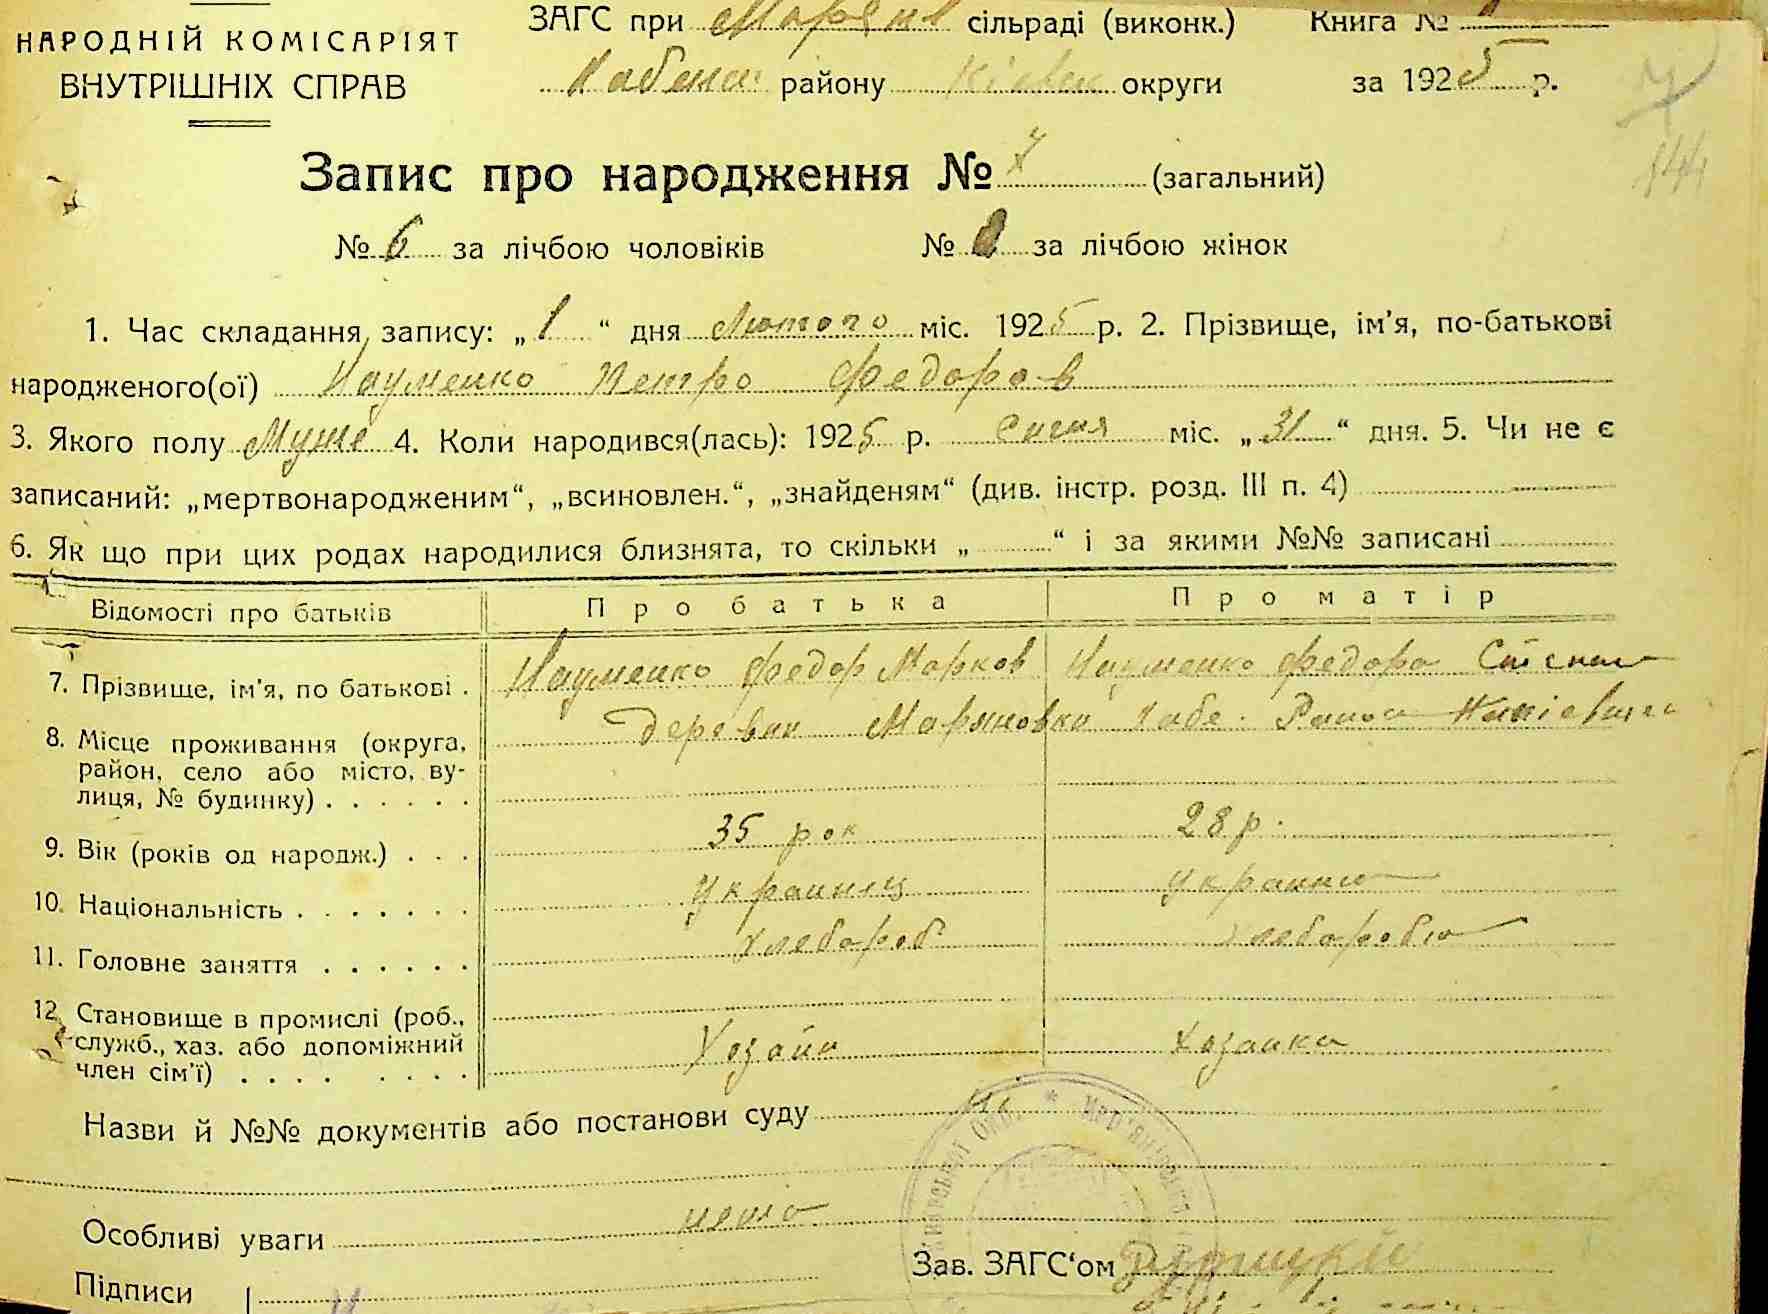 НАРОДНІЙ КОМІСАРІЯТ
ВНУТРІШНІХ СПРАВ
ЗАГС при сільраді (виконк.) Книга №
району округи за 1925 р.
Запис про народження № (загальний)
№ 6 за лічбою чоловіків № за лічбою жінок
1. Час складання запису: „1“ дня Лютого міс. 1925 р. 2. Прізвище, ім'я, по-батькові
народженого(ої) Науменко Петро Федоров
3. Якого полу Муже 4. Коли народився(лась): 1925 р. Сичня міс. „31“ дня. 5. Чи не є
записаний: „мертвонародженим“, „всиновлен.“, „знайденям“ (див. інстр. розд. III п. 4)
6. Як що при цих родах народилися близнята, то скільки „ “ і за якими №№ записані
Відомості про батьків Про батька Про матір
7. Прізвище, ім'я, по батькові . Науменко Федор Марков Науменко Федора
8. Місце проживання (округа, район, село або місто, вулиця, № будинку) . . . . . . Деревни Маряновки Кабе. Раиоа
9. Вік (років од народж.) . . . 35 рок 28 р.
10. Національність . . . . . . . Украинец Украинка
11. Головне заняття . . . . . . хлебороб
12. Становище в промислі (роб., служб., хаз. або допоміжний член сім'ї) . . . . . . . . Хозаин хозаика
Назви й №№ документів або постанови суду
Особливі уваги нема
Зав. ЗАГС‘ом
Підписи